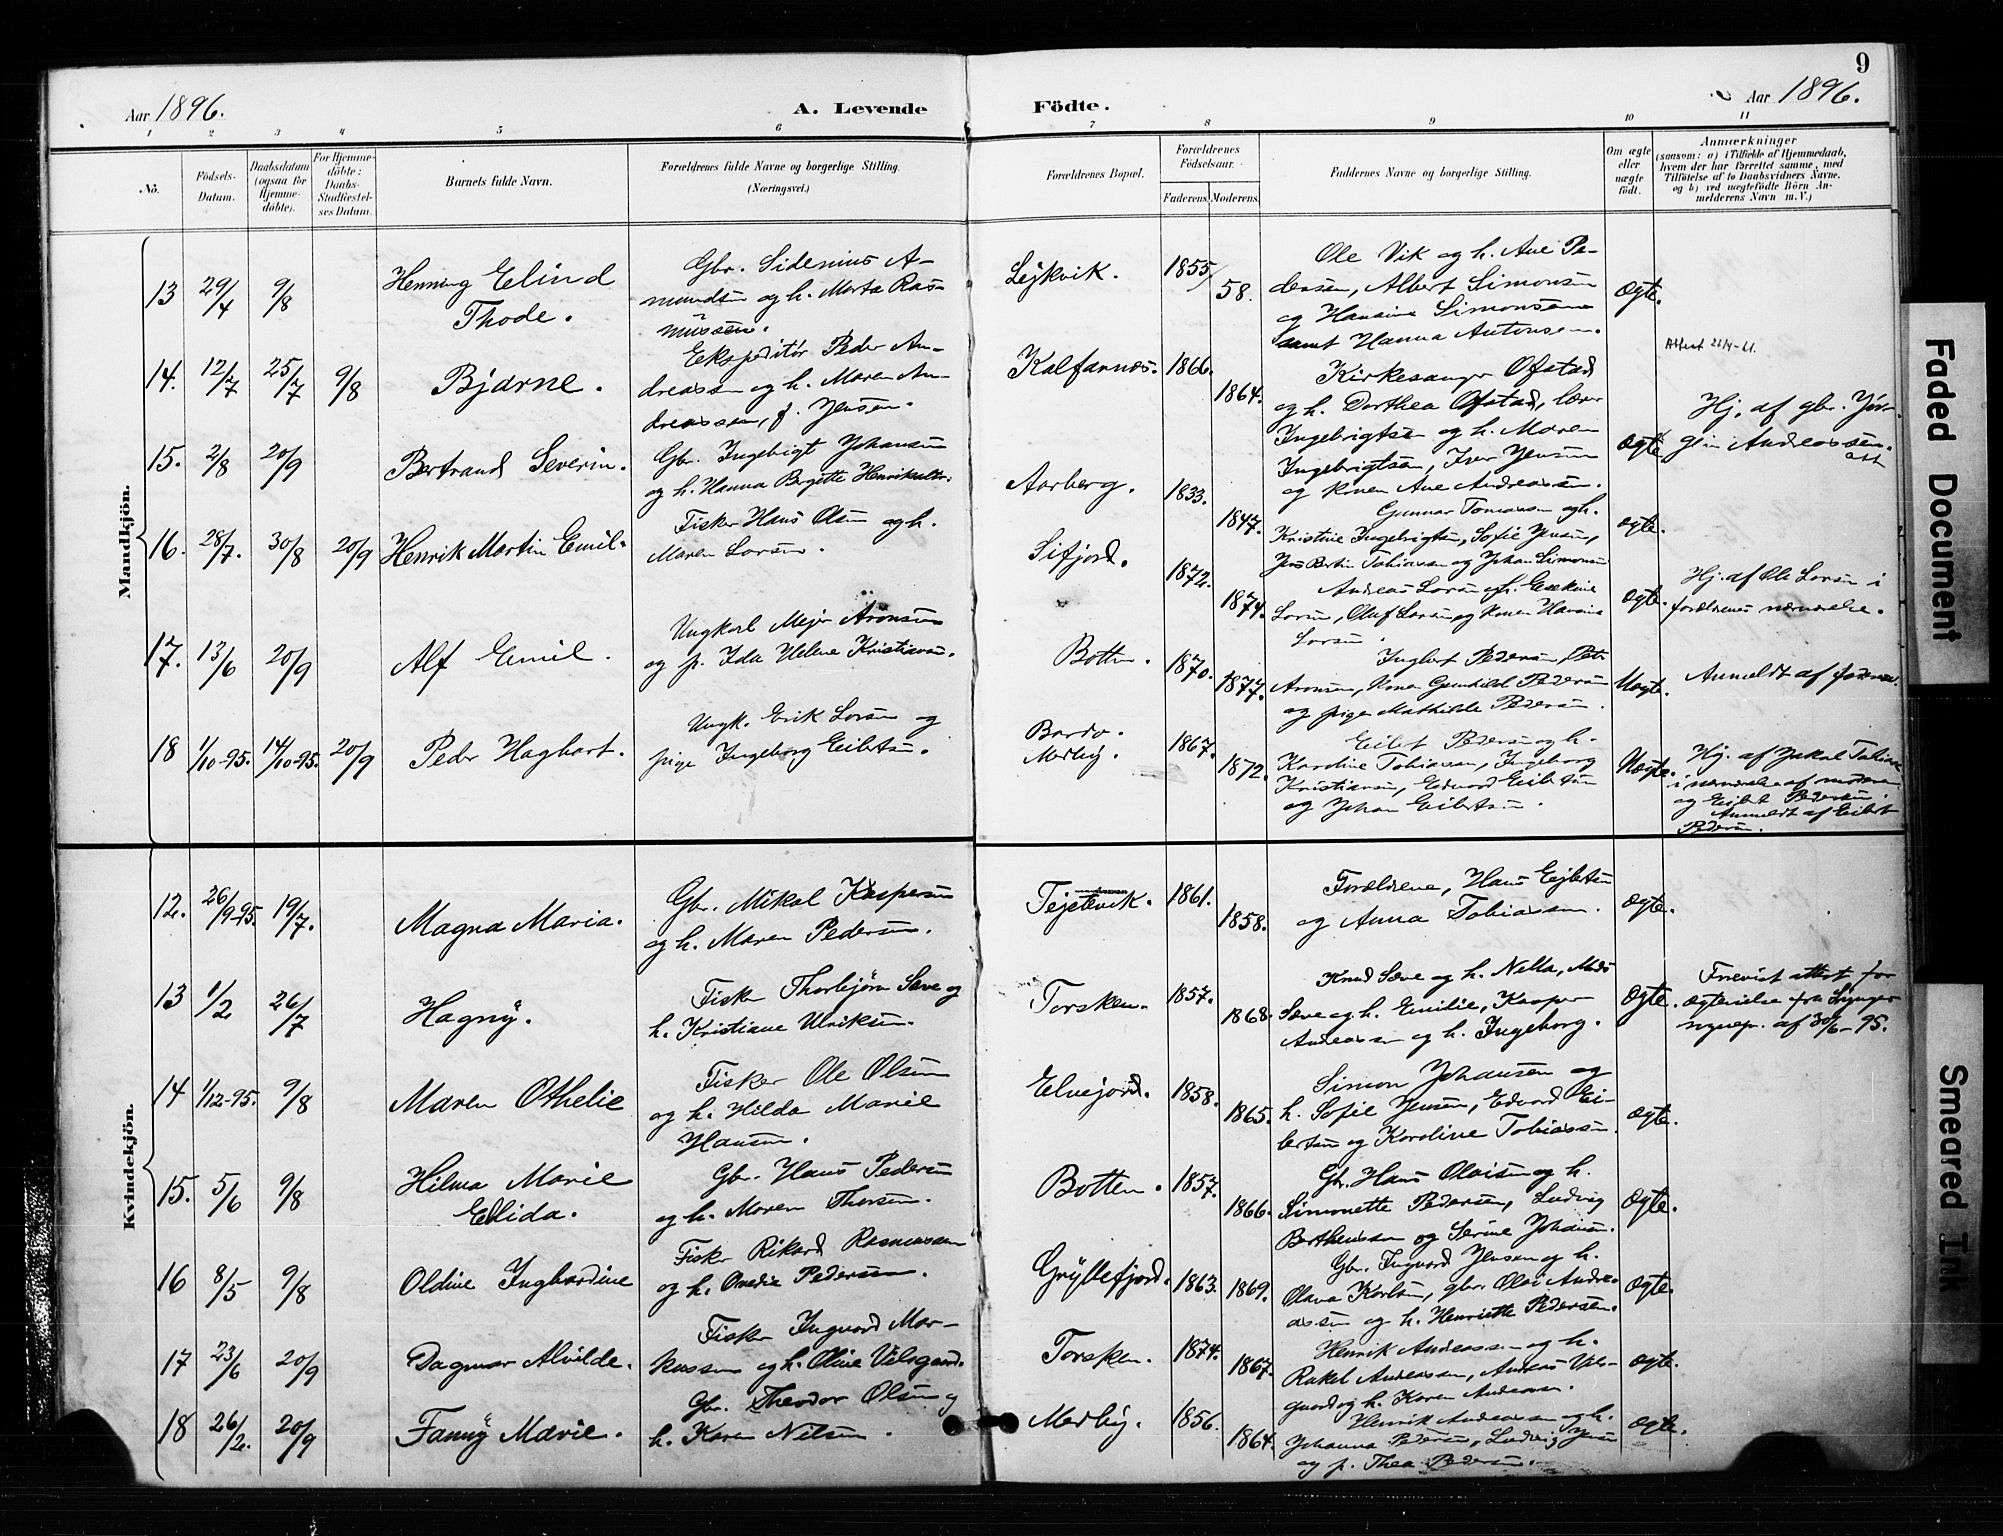 9
Aar 1896.
A. Levende
Födte.
Aar 1896.
1 2 3 4 5 6 7 8 9 10 11
No.
Födsels-
Datum.
Daabsdatum
(ogsaa for
Hjemme-
döbte).
For Hjemme-
döbte:
Daabs-
Stadfæstel-
ses Datum.
Barnets fulde Navn.
Forældrenes fulde Navne og borgerlige Stilling.
(Næringsvei.)
Forældrenes Bopæl.
Forældrenes
Födselsaar.
Faderens.
Moderens.
Faddernes Navne og borgerlige Stilling.
Om ægte
eller
uægte
födt.
Anmærkninger
(saasom: a) i Tilfælde af Hjemmedaab,
hvem der har forrettet samme, med
Tilföielse af to Daabsvidners Navne.
og b) ved uægtefödte Börn An-
melderens Navn m. V.)
Mandkjön.
13 29/4 9/8
Henning Elind
Thode.
Gbr. Sidenius A-
mundsen og h. Marta Ras-
mussen.
Lejkvik.
1855/
58.
Ole Vik og h. Ane Pe-
dersen, Albert Simonsen
og Hansine Simonsen
samt Hanna Antonsen.
ægte.
14. 12/7 25/7 9/8
Bjarne.
Ekspeditör Peder An-
dreassen og h. Maren An-
dreassen, f. Jensen.
Kalfarnes.
1866.
1864.
Kirkesanger Ofstad
og h. Dorthea Ofstad, lærer
Ingebrigtsen og h. Maren
Ingebrigtsen, Iver Jensen
og konen Ane Andreassen.
ægte.
Attest 26/4-61.
Hj. af gbr. Jör-
gen Andreassen.
15. 2/8 20/9
Bertrand Severin.
Gbr. Ingebrigt Johansen
og h. Hanna Bergitte Henriksdtr.
Aarberg.
1833.
1847.
Gunnar Tomassen og h.
Kristine Ingebrigtsen, Sofie Jensen,
Jens Bertin Tobiassen og Johan Simonsen
ægte.
16. 28/7. 30/8 20/9
Henrik Martin Emil.
Fisker Hans Olsen og h.
Maren Larsen.
Sifjord.
1872.
1874.
Andreas Larsen og h.
Larsen, Oluf Larsen og konen Hansine
Larsen.
ægte.
Hj. af Ole Larsen i
forældrenes nærværelse.
17. 13/6 20/9
Alf Emil.
Ungkarl Mejer Aronsen
og p. Ida Helene Kristiansen.
Botten.
1870.
1877.
Ingbert Pedersen, Petr.
Aronsen, konen Gunhild Pedersen
og pigen Mathilde Pedersen.
Uægte.
Anmeldt af faderen.
18 1/10-95. 14/10-95. 20/9
Peder Hagbart.
Ungk. Erik Larsen og
pige Ingeborg Eilertsen.
Bardo.
Medby.
1867.
1872.
Eilert Pedersen og h.
Karoline Tobiassen, Ingeborg
Kristiansen, Edvard Eilertsen
og Johan Eilertsen.
Uægte.
Hj. af Jakob Tobiass
i nærværelse af moderen
og Eilert Pedersen.
Anmeldt af Eilert
Pedersen.
Kvindekjön.
12. 26/9-95. 19/7.
Magna Maria.
Gbr. Mikal Kaspersen
og h. Maren Pedersen.
Tejstevik.
1861.
1858.
Forældrene, Hans Ejlertsen
og Anna Tobiassen.
ægte.
13 1/2 26/7
Hagny.
Fisker Thorbjörn Sæve og
h. Kristiane Ulriksen.
Torsken.
1857.
1868.
Knud Sæve og h. Nella, Mads
Sæve og h. Emilie, Kasper
Andreassen og h. Ingeborg.
ægte.
Frevist attest for
ægtevielse fra Lyngen
sognepr. af 30/6-95.
14 1/12-95. 9/8
Maren Othelie
Fisker Ole Olsen
og h. Hilda Marie
Hansen.
Elvejord.
1858.
1865.
Simon Johansen og
h. Sofie Jensen, Edvard Ei-
lertsen og Karoline Tobiassen.
ægte.
15. 5/6 9/8
Hilma Marie
Elida.
Gbr. Hans Pedersen
og h. Maren Thorsen.
Botten.
1857.
1866.
Gbr. Hans Olaisen og h.
Simonette Pedersen, Ludvig
Berthensen og Serine Johansen.
ægte.
16 8/5 9/8
Oldine Ingbardine
Fisker Rikard Rasmussen
og h. Anedie Pedersen.
Gryllefjord.
1863.
1869.
Gbr. Ingvard Jensen og h.
Olava Karlsen, gbr. Olai Andre-
assen og h. Henriette Pedersen.
ægte.
17 23/6 20/9
Dagmar Alvilde.
Fisker Ingvard Mar-
kussen og h. Oline Vilsgaard.
Torsken.
1874.
1867.
Henrik Andreassen og h.
Rakel Andreassen, Andreas Vils-
gaard og h. Karen Andersen.
ægte.
18 26/2. 20/9
Fanny Marie.
Gbr. Theodor Olsen og
h. Karen Nilsen.
Medby.
1856.
1864.
Henrik Andreassen og h.
Johanna Pedersen, Ludvig Jensen
og p. Thea Pedersen.
ægte.
Faded Document
Smeared Ink